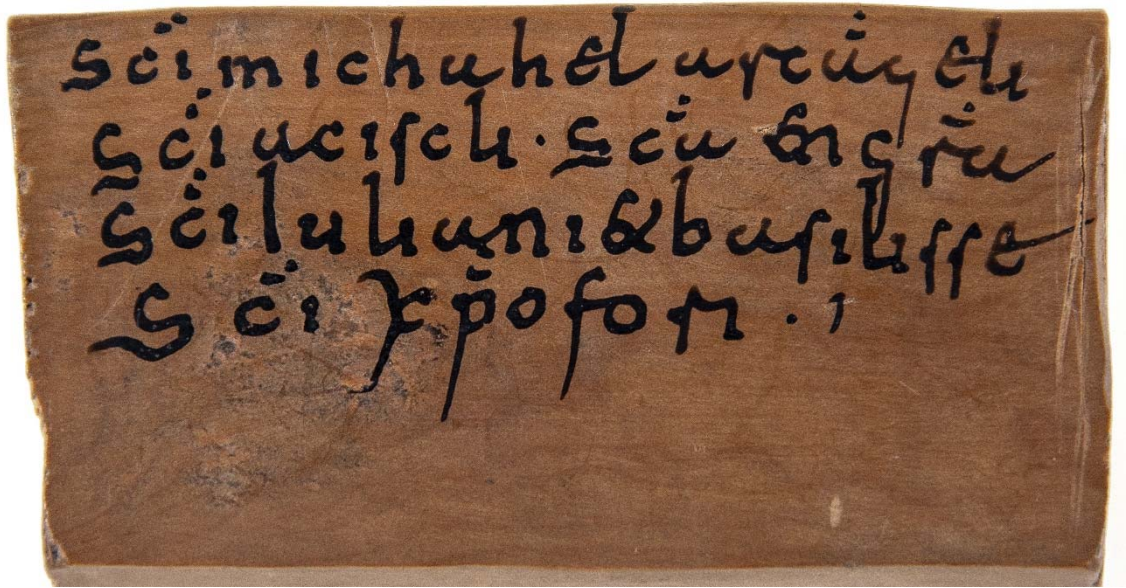 sc̄i michahel arcāgeli
sc̄i aciscli · sc̄a engrā
sc̄i Iuliani & basilisse
sc̄i xp̄ofori ·